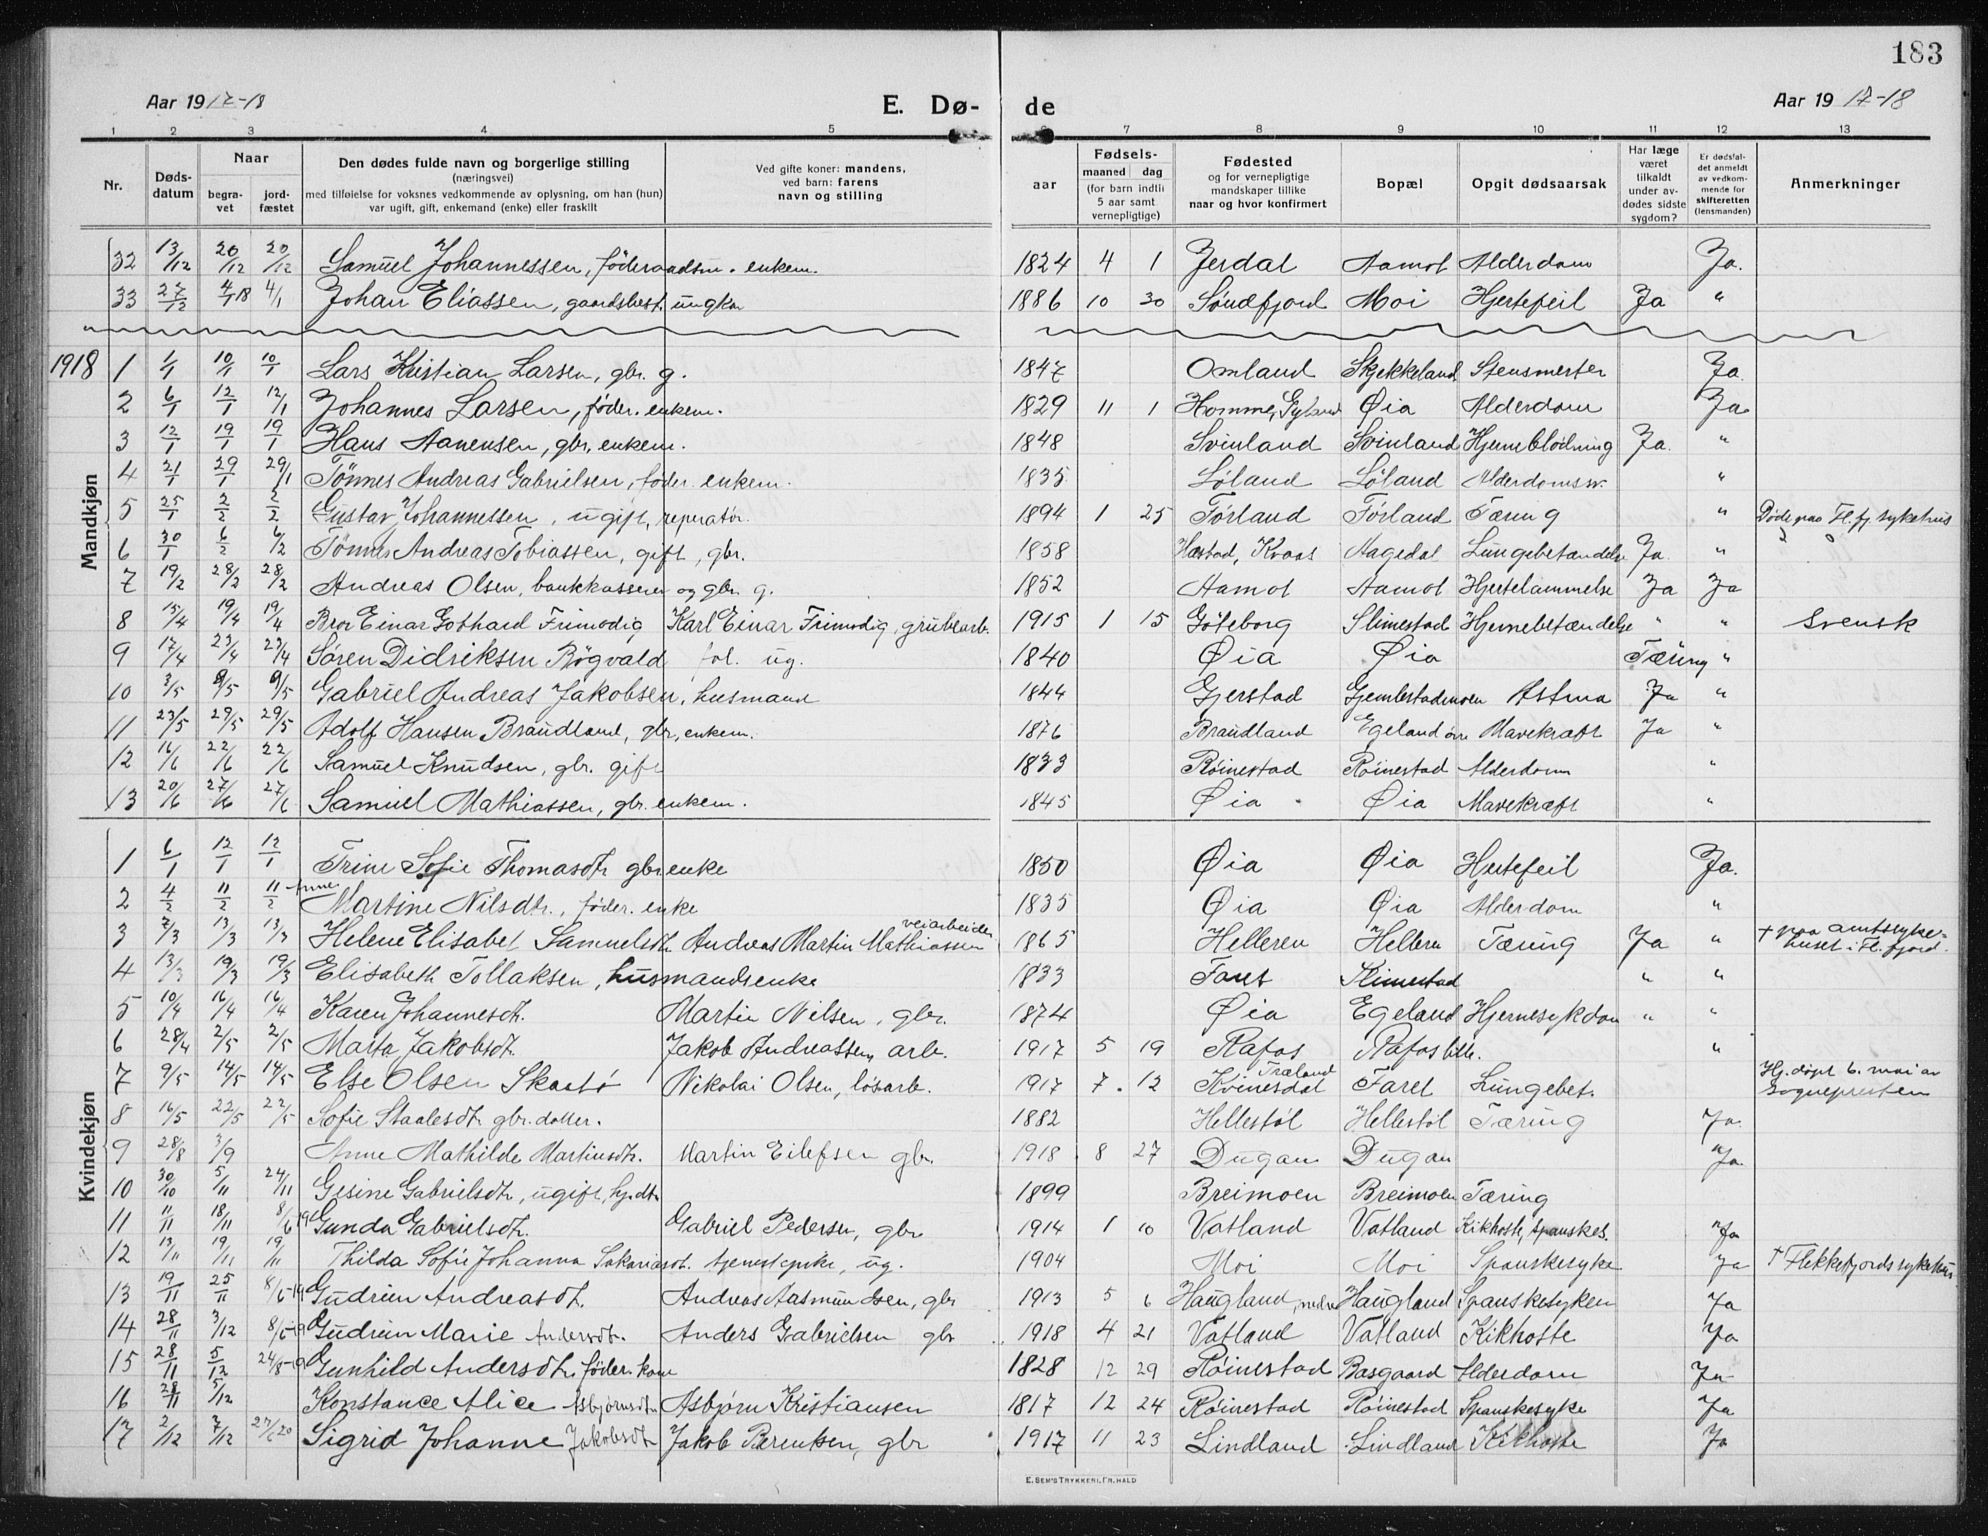 183
Aar 1917-18 E. Dø- de Aar 1917-18
1 2 3 4 5 6 7 8 9 10 11 12 13
Nr. Døds-datum Naar begra-vet jord-fæstet Den dødes fulde navn og borgerlige stilling (næringsvei) med tilføielse for voksnes vedkommende av oplysning, om han (hun) var ugift, gift, enkemand (enke) eller fraskilt Ved gifte koner: mandens, ved barn: farens navn og stilling Fødsels- aar maaned dag (for barn indtil 5 aar samt vernepligtige) Fødested og for vernepligtige mandskaper tillike naar og hvor konfirmert Bopæl Opgit dødsaarsak Har læge været tilkaldt under av-dødes sidste sygdom? Er dødsfal-det anmeldt av vedkom-mende for skifteretten (lensmanden) Anmerkninger
Mandkjøn
32 13/12 20/12 20/12 Samuel Johannessen, føderaadsm. enkem. 1824 4 1 Jerdal Aamot Alderdom Ja.
33 27/12 4/1 18 4/1 Johan Eliassen, gaardsbest. ungkar 1886 10 30 Søndfjord Moi Hjertefeil Ja "
1918 1 1/1 10/1 10/1 Lars Kristian Larsen, gbr. g. 1847 Omland Skjekkeland Stensmerter Ja.
2 6/1 12/1 12/1 Johannes Larsen, føder. enkem. 1829 11 1 Homme, Gyland Øia Alderdom Ja
3 12/1 19/1 19/1 Hans Aanensen, gbr., enkem. 1848 Svinland Svinland Hjerneblødning Ja. "
4 21/1 29/1 29/1 Tønnes Andreas Gabrielsen, føder. enkem. 1835 Løland Løland Alderdomssv. "
5 25/1 2/2 2/2 Gustav Johannessen, ugift, reperatør. 1894 1 25 Førland Førland Tæring " Døde paa Fl.fj. sykehus
6 30/1 6/2 6/2 Tønnes Andreas Tobiassen, gift, gbr. 1858 Kvaas Aagedal Lungebetændelse Ja. "
7 19/2 28/2 28/2 Andreas Olsen, bankkasserer og gbr. g. 1852 Aamot Aamot Hjertelammelse Ja Ja
8 15/4 19/4 19/4 Bror Einar Gothard Frimodig Karl Einar Frimodig, grubearb. 1915 1 15 Göteborg Slimestad Hjernebetændelse " " Svensk
9 17/4 23/4 23/4 Søren Didriksen Røgvald fol. ug. 1840 Øia Øia Tæring "
10 3/5 9/5 9/5 Gabriel Andreas Jakobsen, husmand 1844 Gjerstad Gjemlestadmoen Astma Ja "
11 23/5 29/5 29/5 Adolf Hansen Brandland, gbr., enkem. 1876 Brandland Egeland Mavekræft Ja "
12 16/6 22/6 22/6 Samuel Knudsen, gbr. gift 1833 Røinestad Røinestad Alderdom "
13 20/6 27/6 27/6 Samuel Mathiassen, gbr. enkem. 1845 Øia Øia Mavekræft "
Kvindekjøn
1 6/1 12/1 12/1 Trine Sofie Thomasdtr. gbr enke 1850 Øia Øia Hertefeil Ja.
2 4/2 11/2 11/2 Anne Martine Nilsdtr., føder. enke 1835 Øia Øia Alderdom "
3 7/3 13/3 13/3 Helene Elisabet Samuelsdtr. Andreas Martin Mathiassen veiarbeider 1865 Helleren Helleren Tæring Ja " + paa amtssyke-huset i Fl.fjord.
4 13/3 19/3 19/3 Elisabeth Tollaksen, husmandsenke 1833 Faret Slimestad " "
5 10/4 16/4 16/4 Karen Johannesdtr. Martin Nilsen, gbr. 1874 Øia Egeland Hjernesykdom " "
6 28/4 2/5 2/5 Marta Jakobsdtr. Jakob Andreassen, arb. 1917 5 19 Rafos Rafos lille. "
7 9/5 14/5 14/5 Else Olsen Skaatø Nikolai Olsen, løsarb. 1917 7 12 Træland Kvinesdal Faret Lungebet. Hj.døpt 6. mai av sognepresten
8 16/5 22/5 22/5 Sofie Staalesdtr. gbr. datter. 1882 Hellestøl Hellestøl Tæring Ja.
9 28/8 3/9 Anne Mathilde Martinsdtr. Martin Eilefsen gbr. 1918 8 27 Dugan Dugan Ja.
10 30/10 5/11 24/11 Gesine Gabrielsdtr., ugift, hj.dtr. 1899 Breimoen Breimoen Tæring
11 11/11 18/11 8/6 19 Gunda Gabrielsdtr. Gabriel Pedersen, gbr 1914 1 10 Vatland Vatland Kikhoste, spanskes. Ja
12 13/11 19/11 19/11 Thilda Sofie Johanna Sakariasdt. tjenestepike, ug. 1904 Moi Moi Spanskesyke Ja + Flekkefjords sykehus
13 19/11 25/11 8/6-19 Gudrun Andreasdtr. Andreas Aasmundsen, gbr 1913 5 6 Haugland, nedre Haugland Spanskesyken Ja
14 28/11 3/12 8/6-19 Gudrun Marie Andersdtr. Anders Gabrielsen gbr 1918 4 21 Vatland Vatland Kikhoste Ja
15 28/11 5/12 24/8-19 Gunhild Andersdtr. føder. kone 1828 12 29 Røinestad Basgaard Alderdom Ja
16 28/11 5/12 Konstance Alice Asbjørnsdtr Asbjørn Kristiansen 1817 12 24 Røinestad Røinestad Spanskesyke Ja
17 2/12 7/12 27/6 20 Sigrid Johanne Jakobsdtr Jakob Berentsen, gbr 1917 11 23 Lindland Lindland Kikhoste Ja
E. SEM'S TRYKKERI, FR.HALD